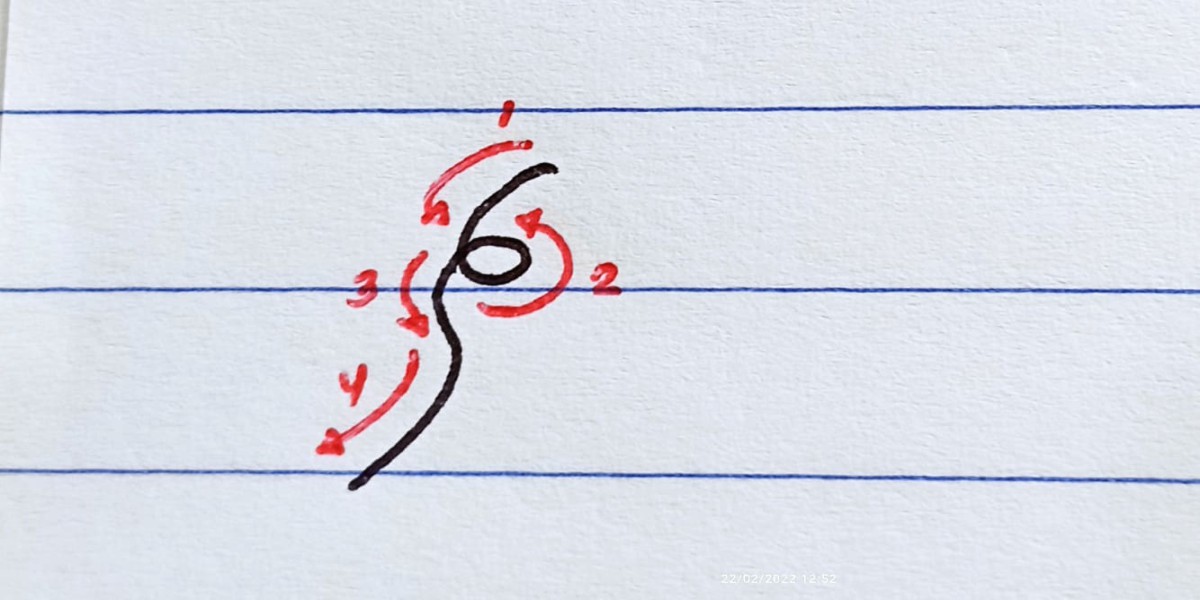 1
3 2
4
22/02/2022 12:52